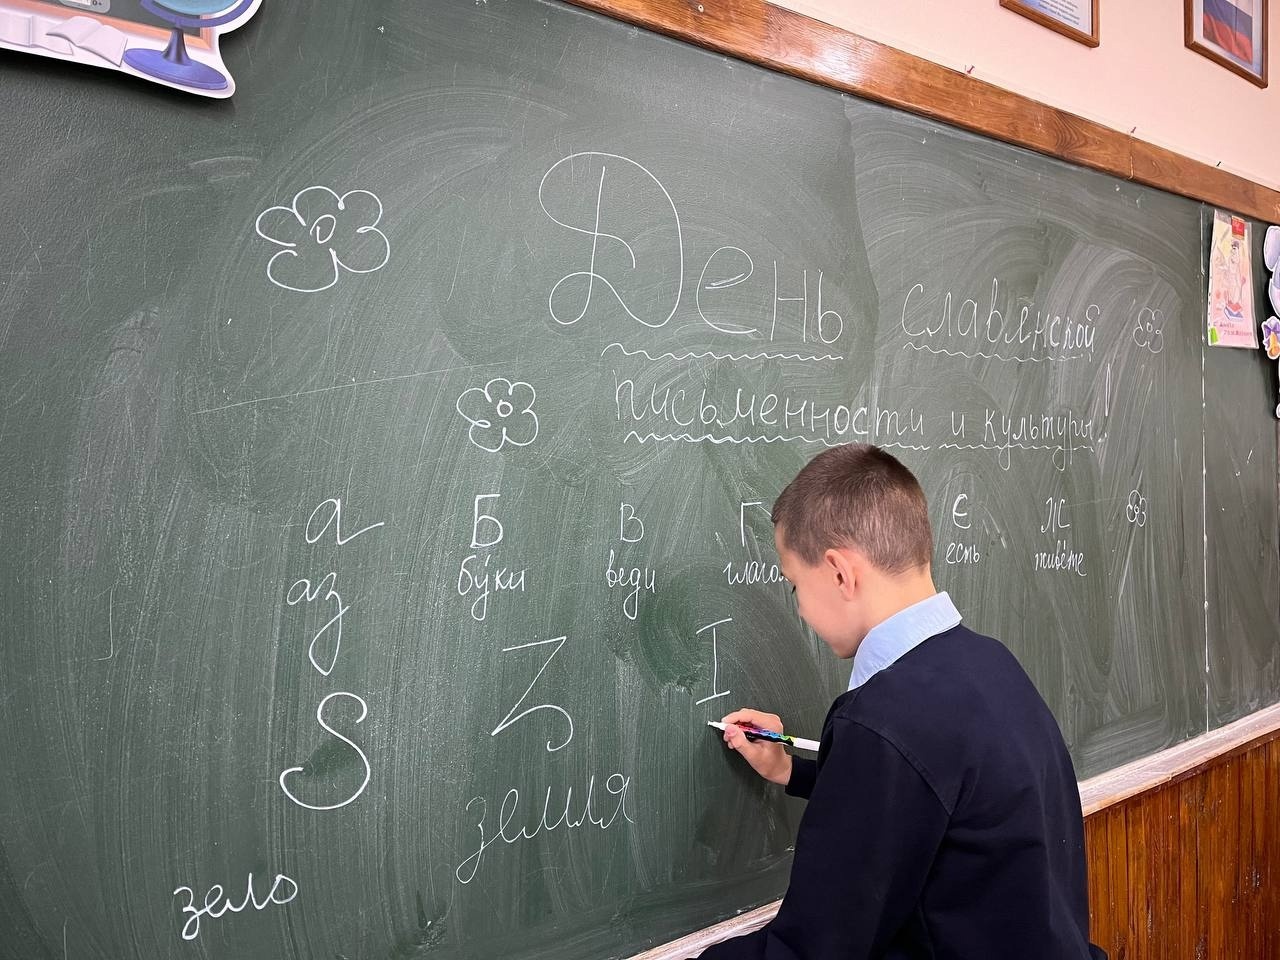 День славянской
письменности и культуры!
а Б В Г Є Ж
аз буки веди есть живете
Ѕ З І
зело земля